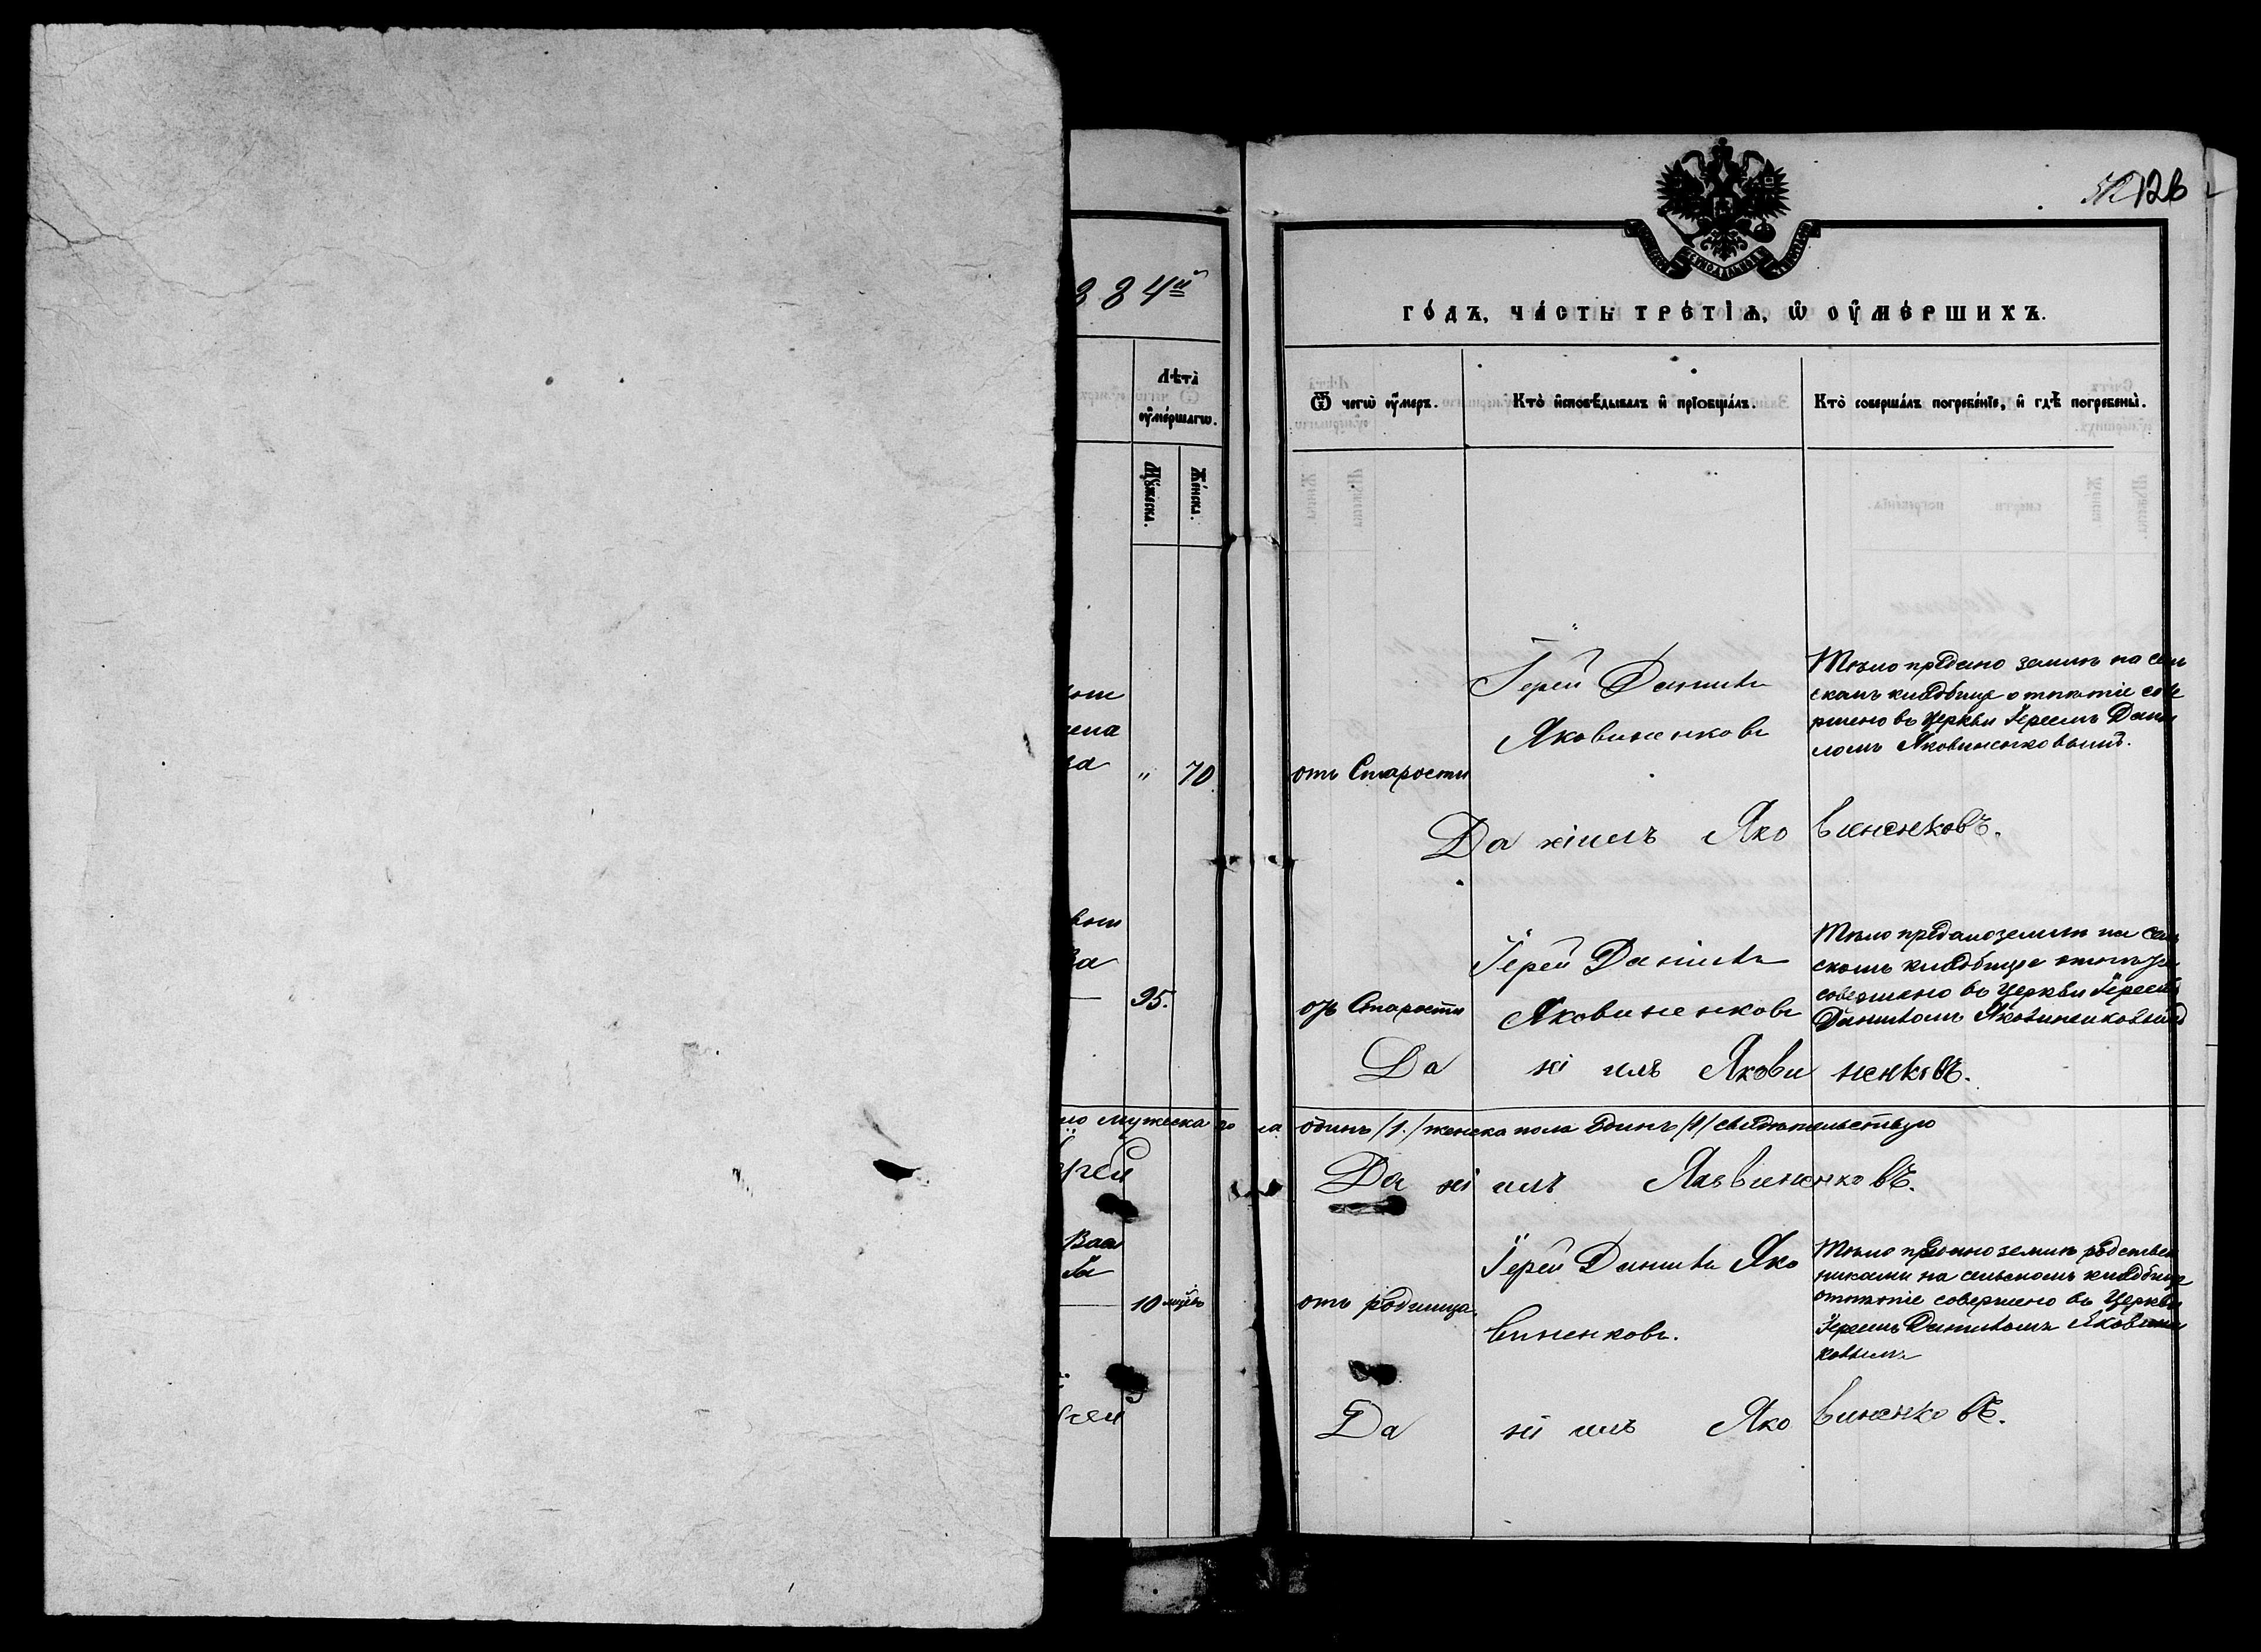 126
884й
ГОДЪ, ЧАСТЬ ТРЕТІѦ, Ѡ ОУМЕРШИХЪ.
Лѣта оумершагѡ.
Мужеска.
Женска.
Ѿ чегѡ оумеръ.
Кто исповѣдывалъ и пріобщалъ.
Кто совершалъ погребеніе, и гдѣ погребены.
" 70
отъ Старости
Іерей Даніилъ
Яковиненковъ
Тѣло предано землѣ на сель
скомъ кладбище отпѣтіе сове
ршено въ Церкви Іереемъ Дані
ломъ Яковиненковымъ.
Даніилъ Яковиненковъ.
95.
отъ Старости
Іерей Даніилъ
Яковиненковъ
Тѣло предано землѣ на сель
скомъ кладбище
совершено въ Церкви Іереемъ
Даніиломъ Яковиненковымъ
Даніилъ Яковиненковъ.
мужеска по ла одинъ /1./ женска пола одинъ /1/ свидѣтельствую
Даніилъ Яковиненковъ.
10 мцевъ
отъ родимца.
Іерей Даніилъ Яко
виненковъ.
Тѣло предано землѣ родствен
никами на сельскомъ кладбище
отпѣтіе совершено въ Церкви
Іереемъ Даніиломъ Яковинен
ковымъ
Даніилъ Яковиненковъ.